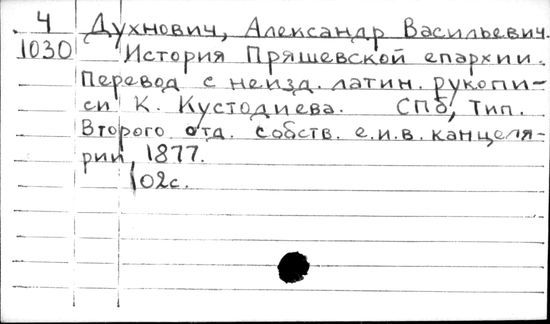 4 Духнович, Александр Васильевич.
1030 История Пряшевской епархии.
Перевод с неизд. латин. рукопи-
си К. Кустодиева. СПб, Тип.
Второго отд. собств. е.и.в. канцеля-
рии, 1877.
102с.